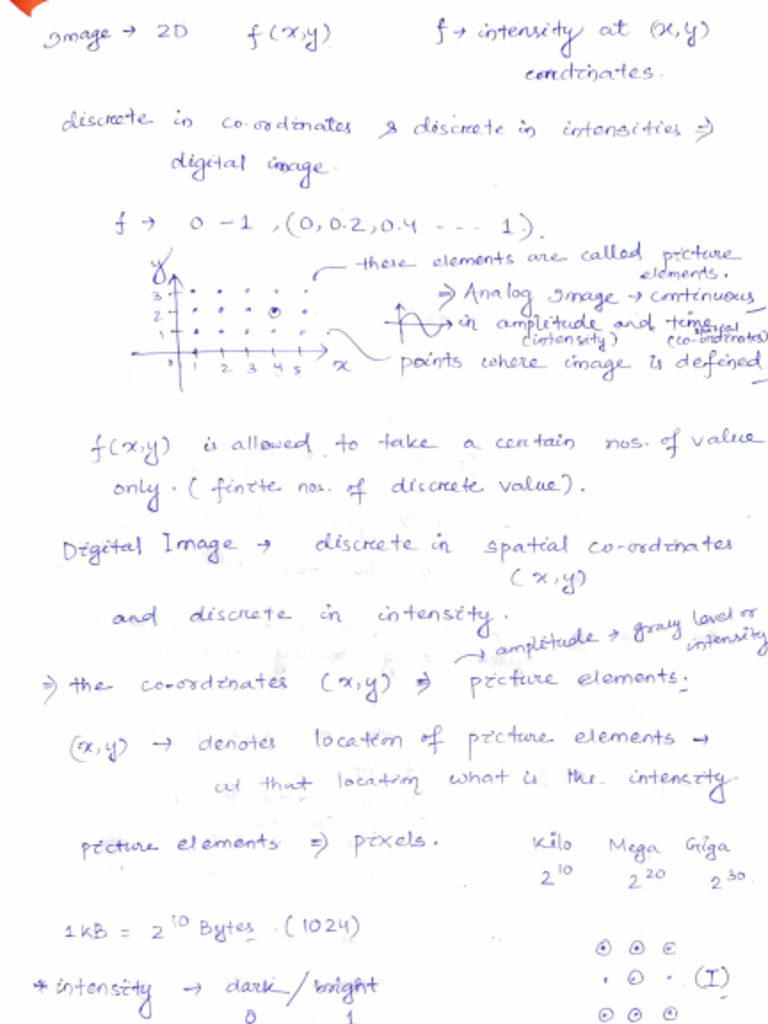 Image → 2D f(x,y) f → intensity at (x,y)
cordinates.
discrete in co-ordinates & discrete in intensities ⇒
digital image.
f → 0 - 1 , (0, 0.2, 0.4 - - - 1).
y → these elements are called picture
elements.
3 ⇒ Analog Image → continuous
2 → in amplitude and time
(intensity) spatial (co-ordinates)
1
0 1 2 3 4 5 x points where image is defined
f(x,y) is allowed to take a certain nos. of value
only. ( finite nos. of discrete value).
Digital Image → discrete in spatial co-ordinates
(x,y)
and discrete in intensity.
→ amplitude → gray level or
intensity
⇒ the co-ordinates (x,y) ⇒ picture elements.
(x,y) → denotes location of picture elements →
at that location what is the intensity.
picture elements ⇒ pixels. Kilo Mega Giga
2^10 2^20 2^30
1 KB = 2^10 Bytes . (1024)
* intensity → dark / bright (I)
0 1